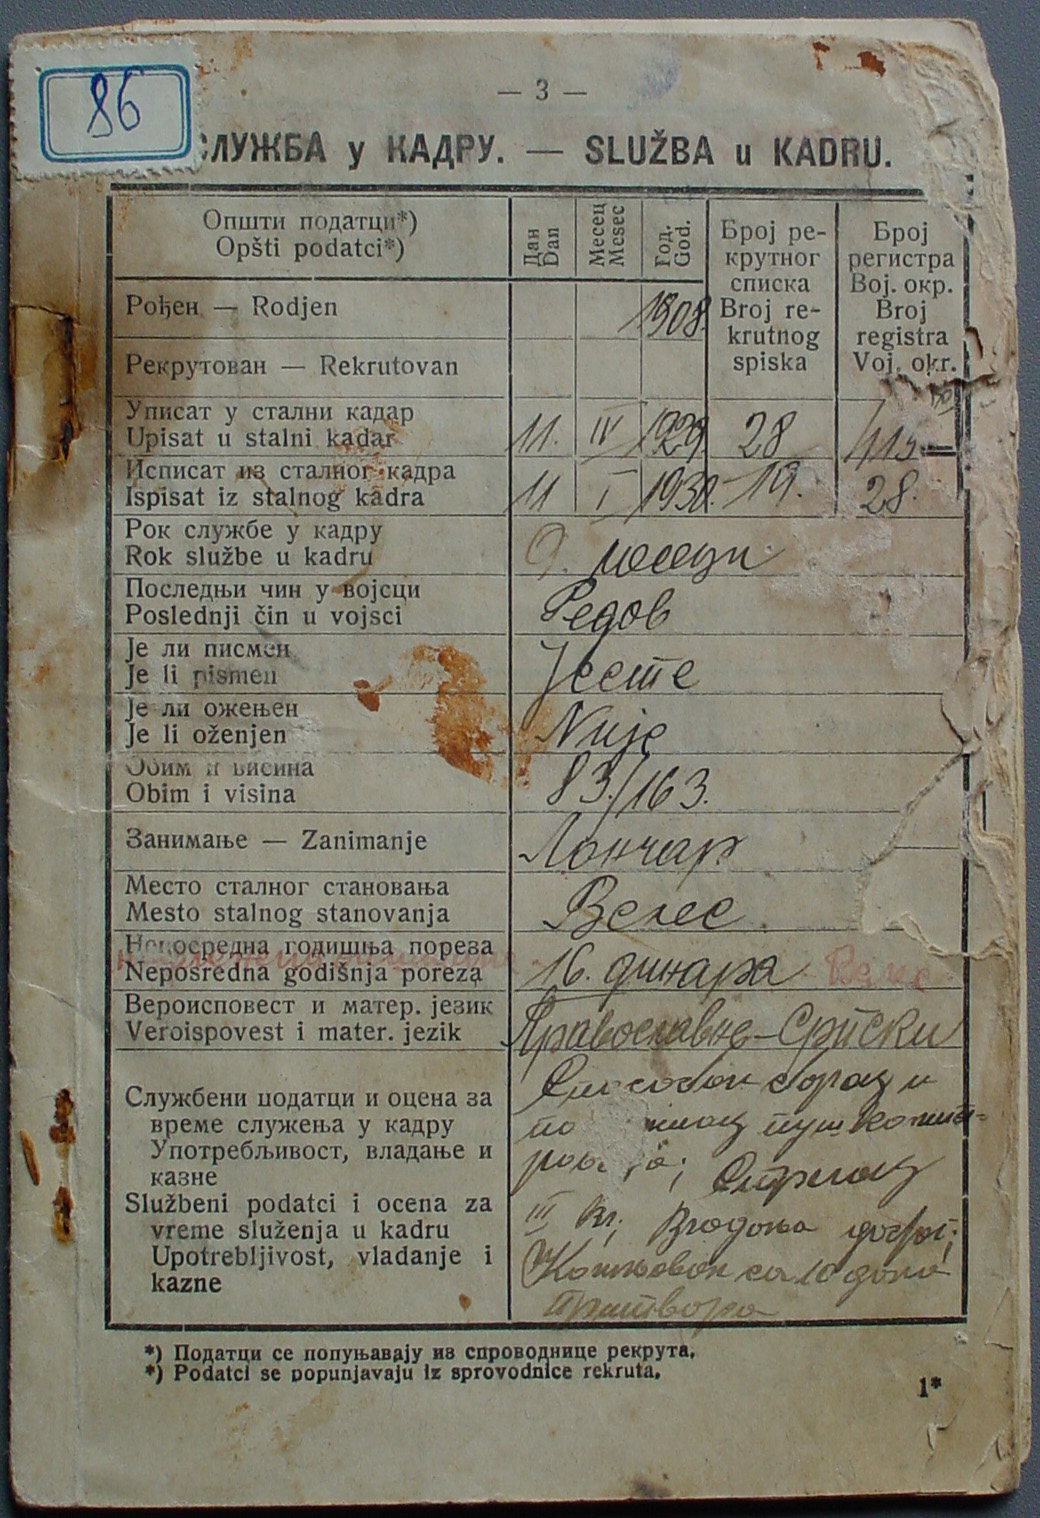 86
— 3 —
СЛУЖБА у КАДРУ. — SLUŽBA u KADRU.
Општи податци*)
Opšti podatci*)
Дан
Dan
Месец
Mesec
Год.
God.
Број ре-
крутног
списка
Broj re-
krutnog
spiska
Број
регистра
Вој. окр.
Broj
registra
Voj. okr.
Рођен — Rodjen
1908.
Рекрутован — Rekrutovan
Уписат у стални кадар
Upisat u stalni kadar
11. IV 1929 28
Исписат из сталног кадра
Ispisat iz stalnog kadra
11 I 1930. 19. 28.
Рок службе у кадру
Rok službe u kadru
9. месеци
Последњи чин у војсци
Poslednji čin u vojsci
Редов
Је ли писмен
Je li pismen
Јесте
Је ли ожењен
Je li oženjen
Није
Обим и висина
Obim i visina
83./163.
Занимање — Zanimanje
Лончар
Место сталног становања
Mesto stalnog stanovanja
Велес.
Непосредна годишња пореза
Neposredna godišnja poreza
16. динара Велес
Вероисповест и матер. језик
Veroispovest i mater. jezik
Православне – Српски
Службени податци и оцена за
време служења у кадру
Употребљивост, владање и
казне
Službeni podatci i ocena za
vreme služenja u kadru
Upotrebljivost, vladanje i
kazne
Способан борац и
пушкомит-
Стрелац
III кл; Владања доброг;
Кажњаван са 10 дана
притвора
*) Податци се попуњавају из спроводнице рекрута.
*) Podatci se popunjavaju iz sprovodnice rekruta.
1*